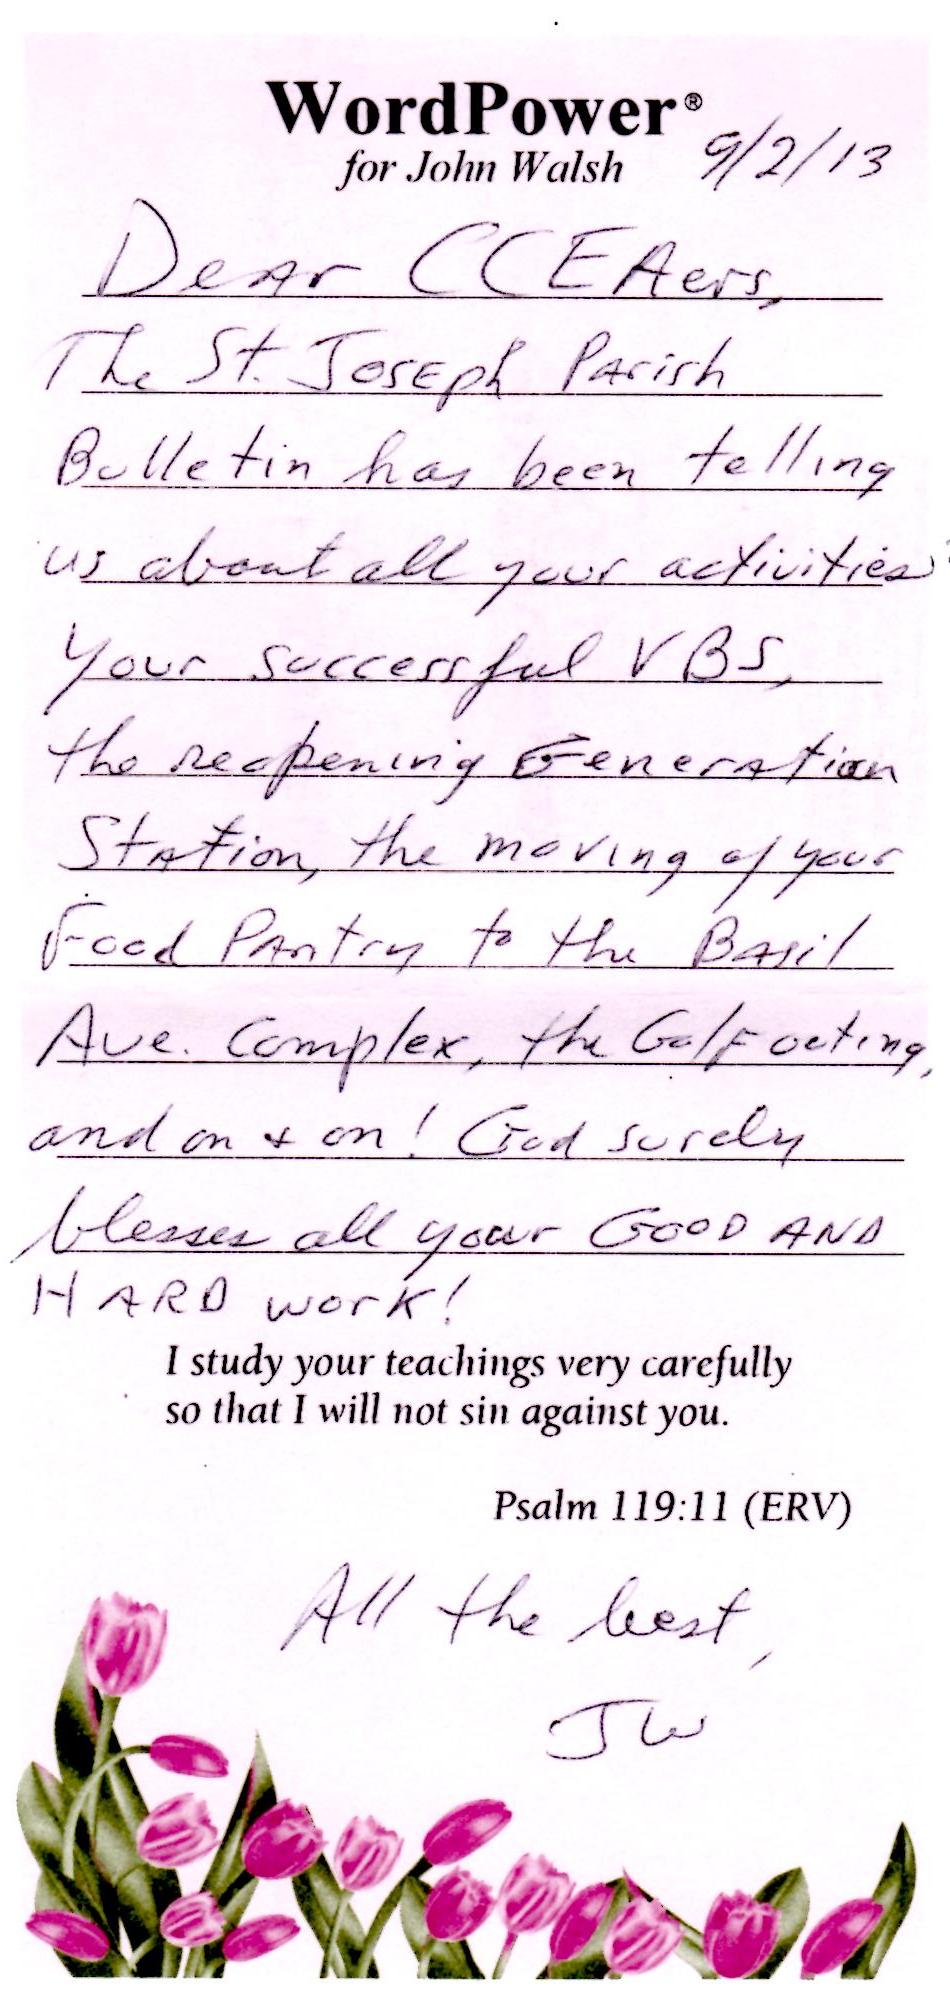 WordPower®
for John Walsh 9/2/13
Dear CCEAers,
The St. Joseph Parish
Bulletin has been telling
us about all your activities:
Your successful VBS,
the reopening Generation
Station, the moving of your
Food Pantry to the Basil
Ave. Complex, the Golf outing,
and on & on! God surely
blesses all your GOOD AND
HARD work!
I study your teachings very carefully
so that I will not sin against you.
Psalm 119:11 (ERV)
All the best,
JW